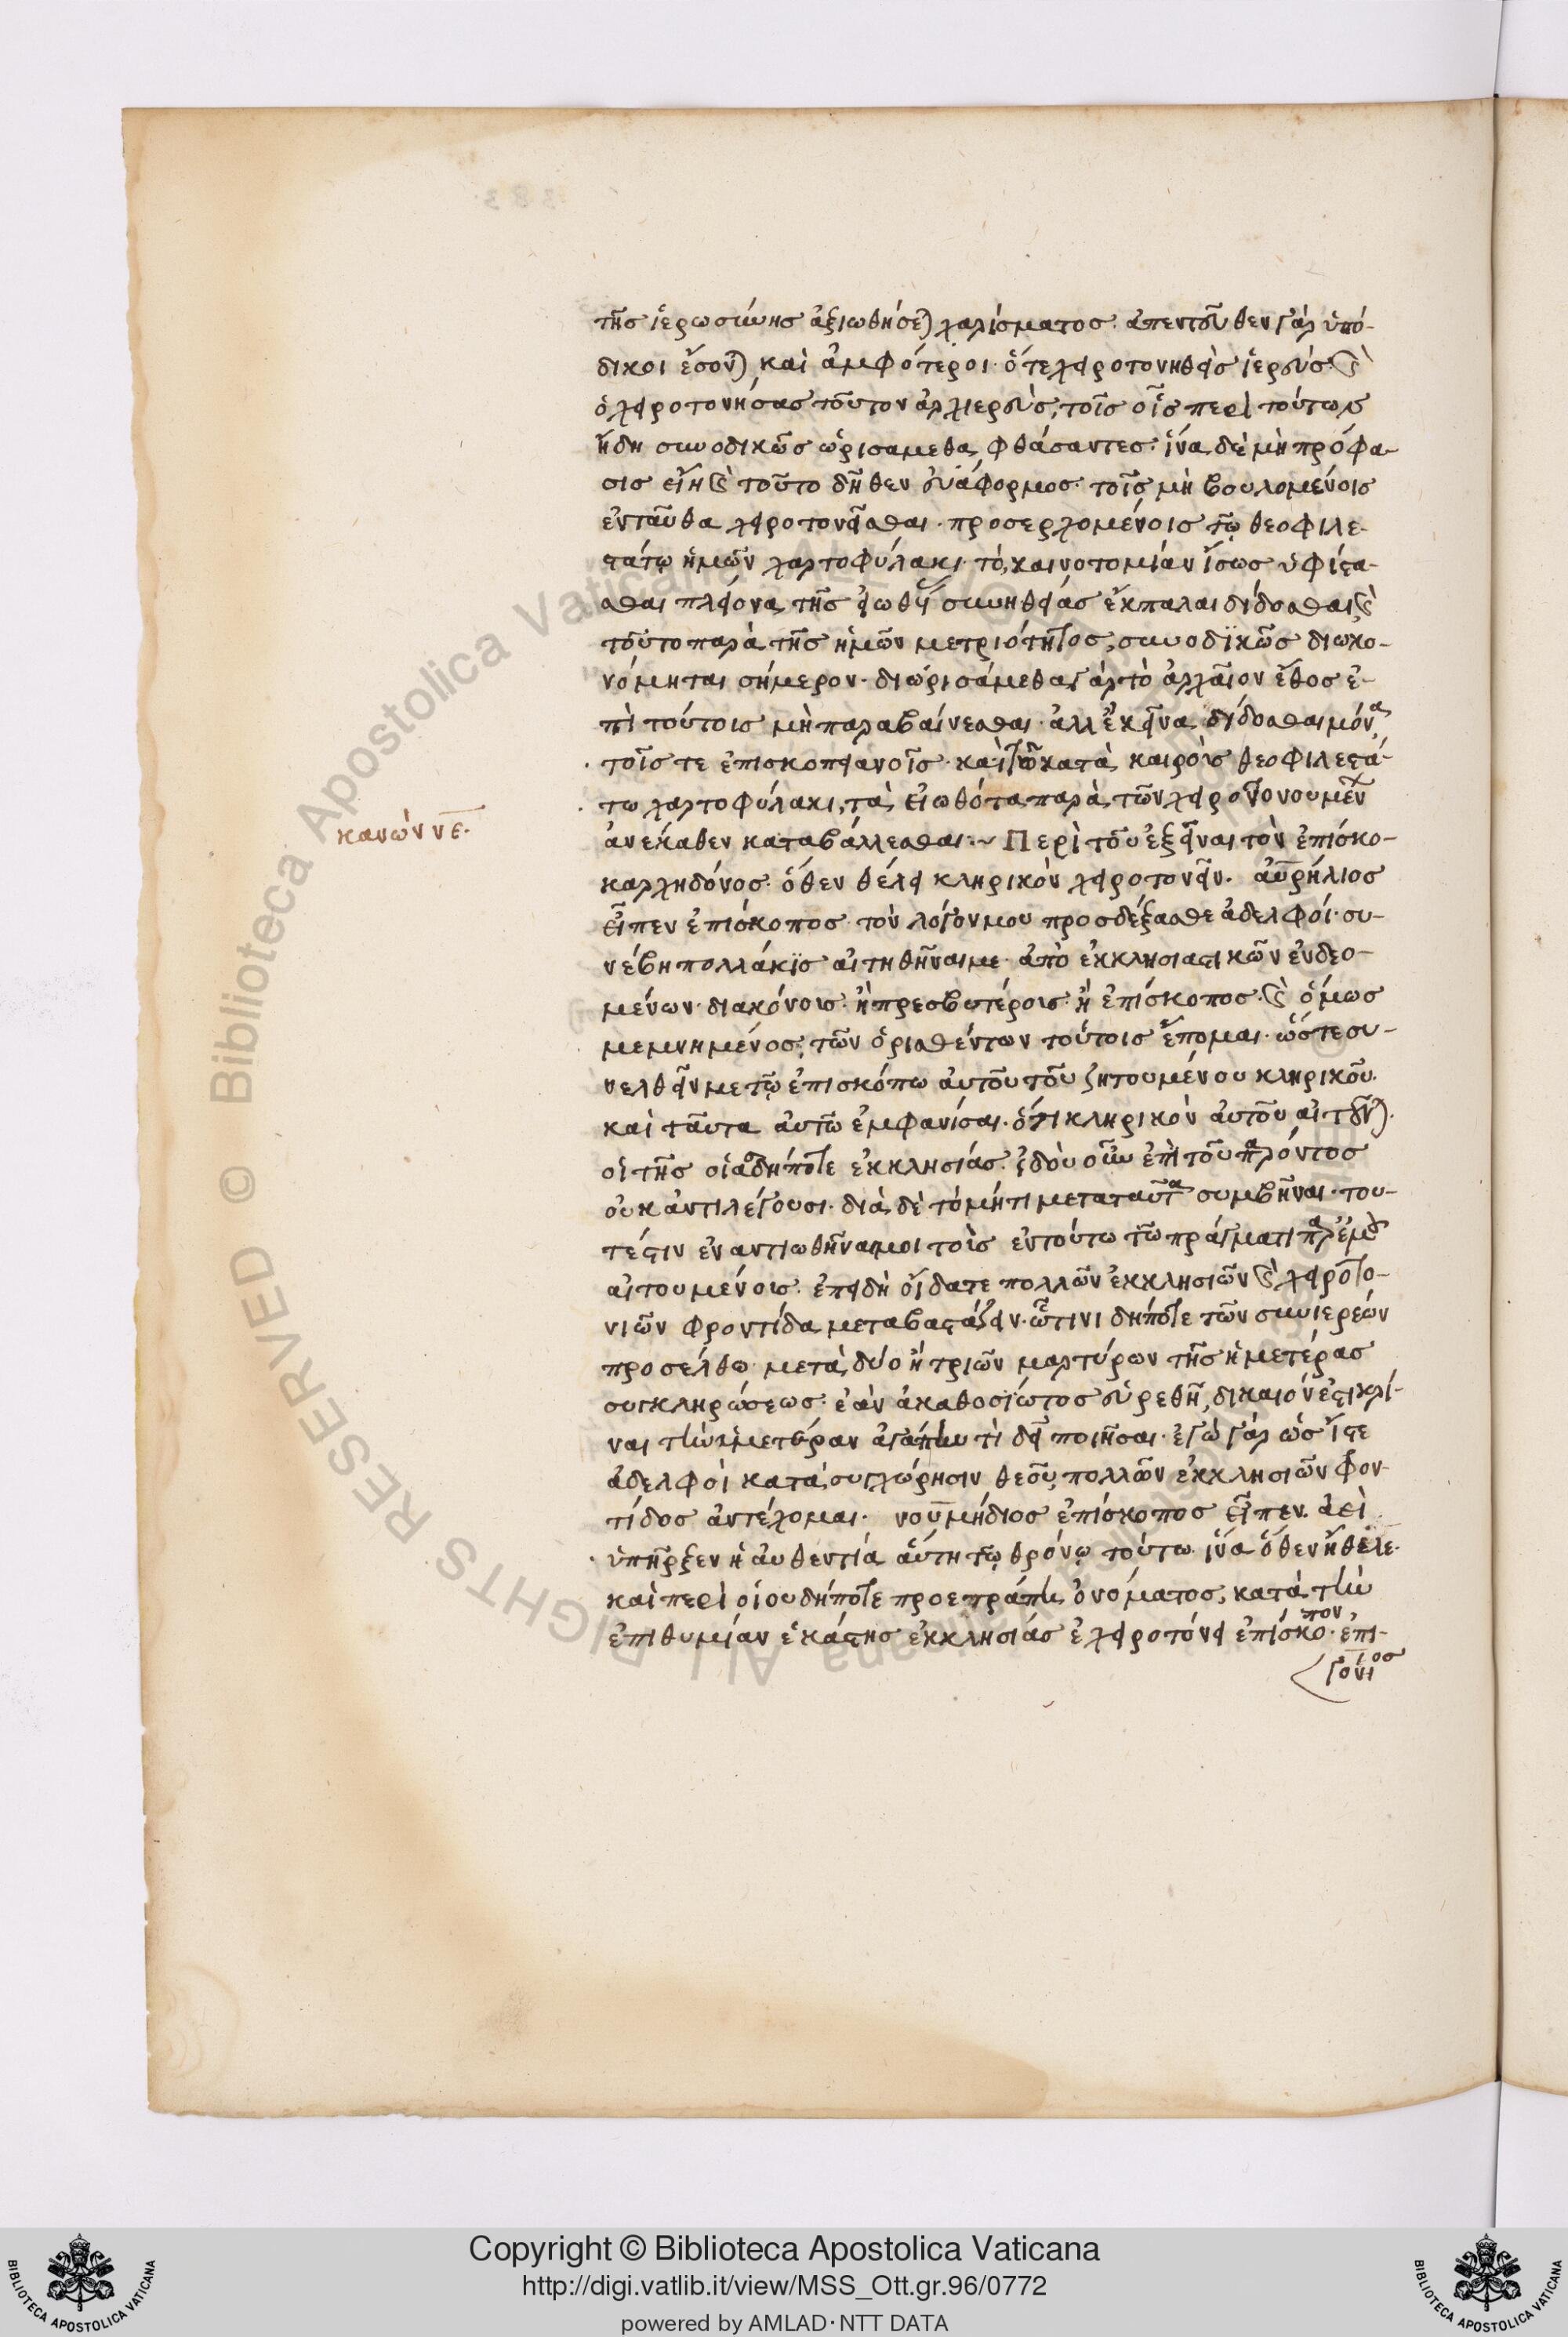 τῆς ἱερωσύνης ἀξιωθήσεται χαρίσματος· ἀπεντεῦθεν γὰρ ὑπό-
δικοι ἔσονται καὶ ἀμφότεροι· ὅτε χειροτονηθεὶς ἱερεὺς καὶ
ὁ χειροτονήσας τοῦτον ἀρχιερεὺς, τοῖς οἷς περὶ τούτων
ἤδη συνοδικῶς ὡρισάμεθα φθάσαντες· ἵνα δὲ μὴ πρόφα-
σις εἴη καὶ τοῦτο δῆθεν εὐάφορμος τοῖς μὴ βουλομένοις
ἐνταῦθα χειροτονεῖσθαι· προσερχομένοις τῷ θεοφιλε-
στάτῳ ἡμῶν χαρτοφύλακι· τὸ, καινοτομίαν ἴσως ὑφίστα-
σθαι πλείονα τῆς εἰωθυί συνηθείας ἔκπαλαι δίδοσθαι καὶ
τοῦτο παρὰ τῆς ἡμῶν μετριότητος, συνοδϊκῶς διωκο-
νόμηται σήμερον· διωρισάμεθα γὰρ τὸ ἀρχαῖον ἔθος ἐ-
πὶ τούτοις μὴ παραβαίνεσθαι· ἀλλ ἐκεῖνα δίδοσθαι μόνα
τοῖς τε ἐπισκοπειανοῖς· καὶ τῷ κατὰ καιροὺς θεοφιλεστά-
τω χαρτοφύλακι, τὰ εἰωθότα παρὰ τῶν χειροτονουμένων
ἀνέκαθεν καταβάλλεσθαι:~ Περὶ τοῦ ἐξεῖναι τὸν ἐπίσκο-
κανὼν νε.
καρχηδόνος· ὅθεν θέλει κληρικὸν χειροτονεῖν. αὐρήλιος
εἶπεν ἐπίσκοπος· τὸν λόγον μου προσδέξασθε ἀδελφοί· συ-
νέβη πολλάκϊς αἰτηθῆναι με· ἀπὸ ἐκκλησιαστικῶν ἐνδεο-
μένων· διακόνοις· ἢ πρεσβυτέροις· ἢ ἐπίσκοπος· καὶ ὅμως
μεμνημένος, τῶν ὁρισθέντων τούτοις ἕπομαι· ὥστε συ-
νελθεῖν με τῷ ἐπισκόπω αὐτοῦ τοῦ ζητουμένου κληρικοῦ.
καὶ ταῦτα αὐτῶ ἐμφανίσαι· ὅτι κληρικὸν αὐτοῦ αἰτοῦνται.
οἱ τῆς οἱασδήποτε ἐκκλησίας· ἰδοὺ οὖν ἐπὶ τοῦ παρόντος
οὐκ ἀντιλέγουσι· διὰ δὲ τὸ μήτι μετα ταῦτα συμβῆναι· του-
τέστιν ἐναντιωθῆναι μοι τοῖς ἐν τούτω τῶ πράγματι παρ ἐμοῦ
αἰτουμένοις· ἐπειδὴ οἴδατε πολλῶν ἐκκλησιῶν καὶ χειροτο-
νιῶν φροντίδα μεταβαστάζειν· ὧτινι δήποτε τῶν συνιερέων
προσέλθω· μετὰ δύο ἢ τριῶν μαρτύρων τῆς ἡμετέρας
συγκληρώσεως· ἐὰν ἀκαθοσίωτος εὑρεθῆ, δικαιόν ἐστι κρί-
ναι τὴν ἡμετέραν ἀγάπην τὶ δεῖ ποιῆσαι· ἐγὼ γὰρ ὡς ἴστε
ἀδελφοὶ κατὰ συγχώρησιν θεοῦ, πολλῶν ἐκκλησιῶν φον-
τίδος ἀντέχομαι· νουμήδιος ἐπίσκοπος εἶπεν. ἀεὶ
ὑπῆρξεν ἡ αὐθεντία αὕτη τῷ θρόνῳ τούτω· ἵνα ὅθεν ἤθελε
καὶ περὶ οἱουδήποτε προετράπη ὀνόματος, κατὰ τὴν
ἐπιθυμίαν ἑκάστης ἐκκλησίας ἐχειροτόνει ἐπίσκοπον· ἐπι-
γόνιος
Copyright © Biblioteca Apostolica Vaticana
http://digi.vatlib.it/view/MSS_Ott.gr.96/0772
powered by AMLAD·NTT DATA